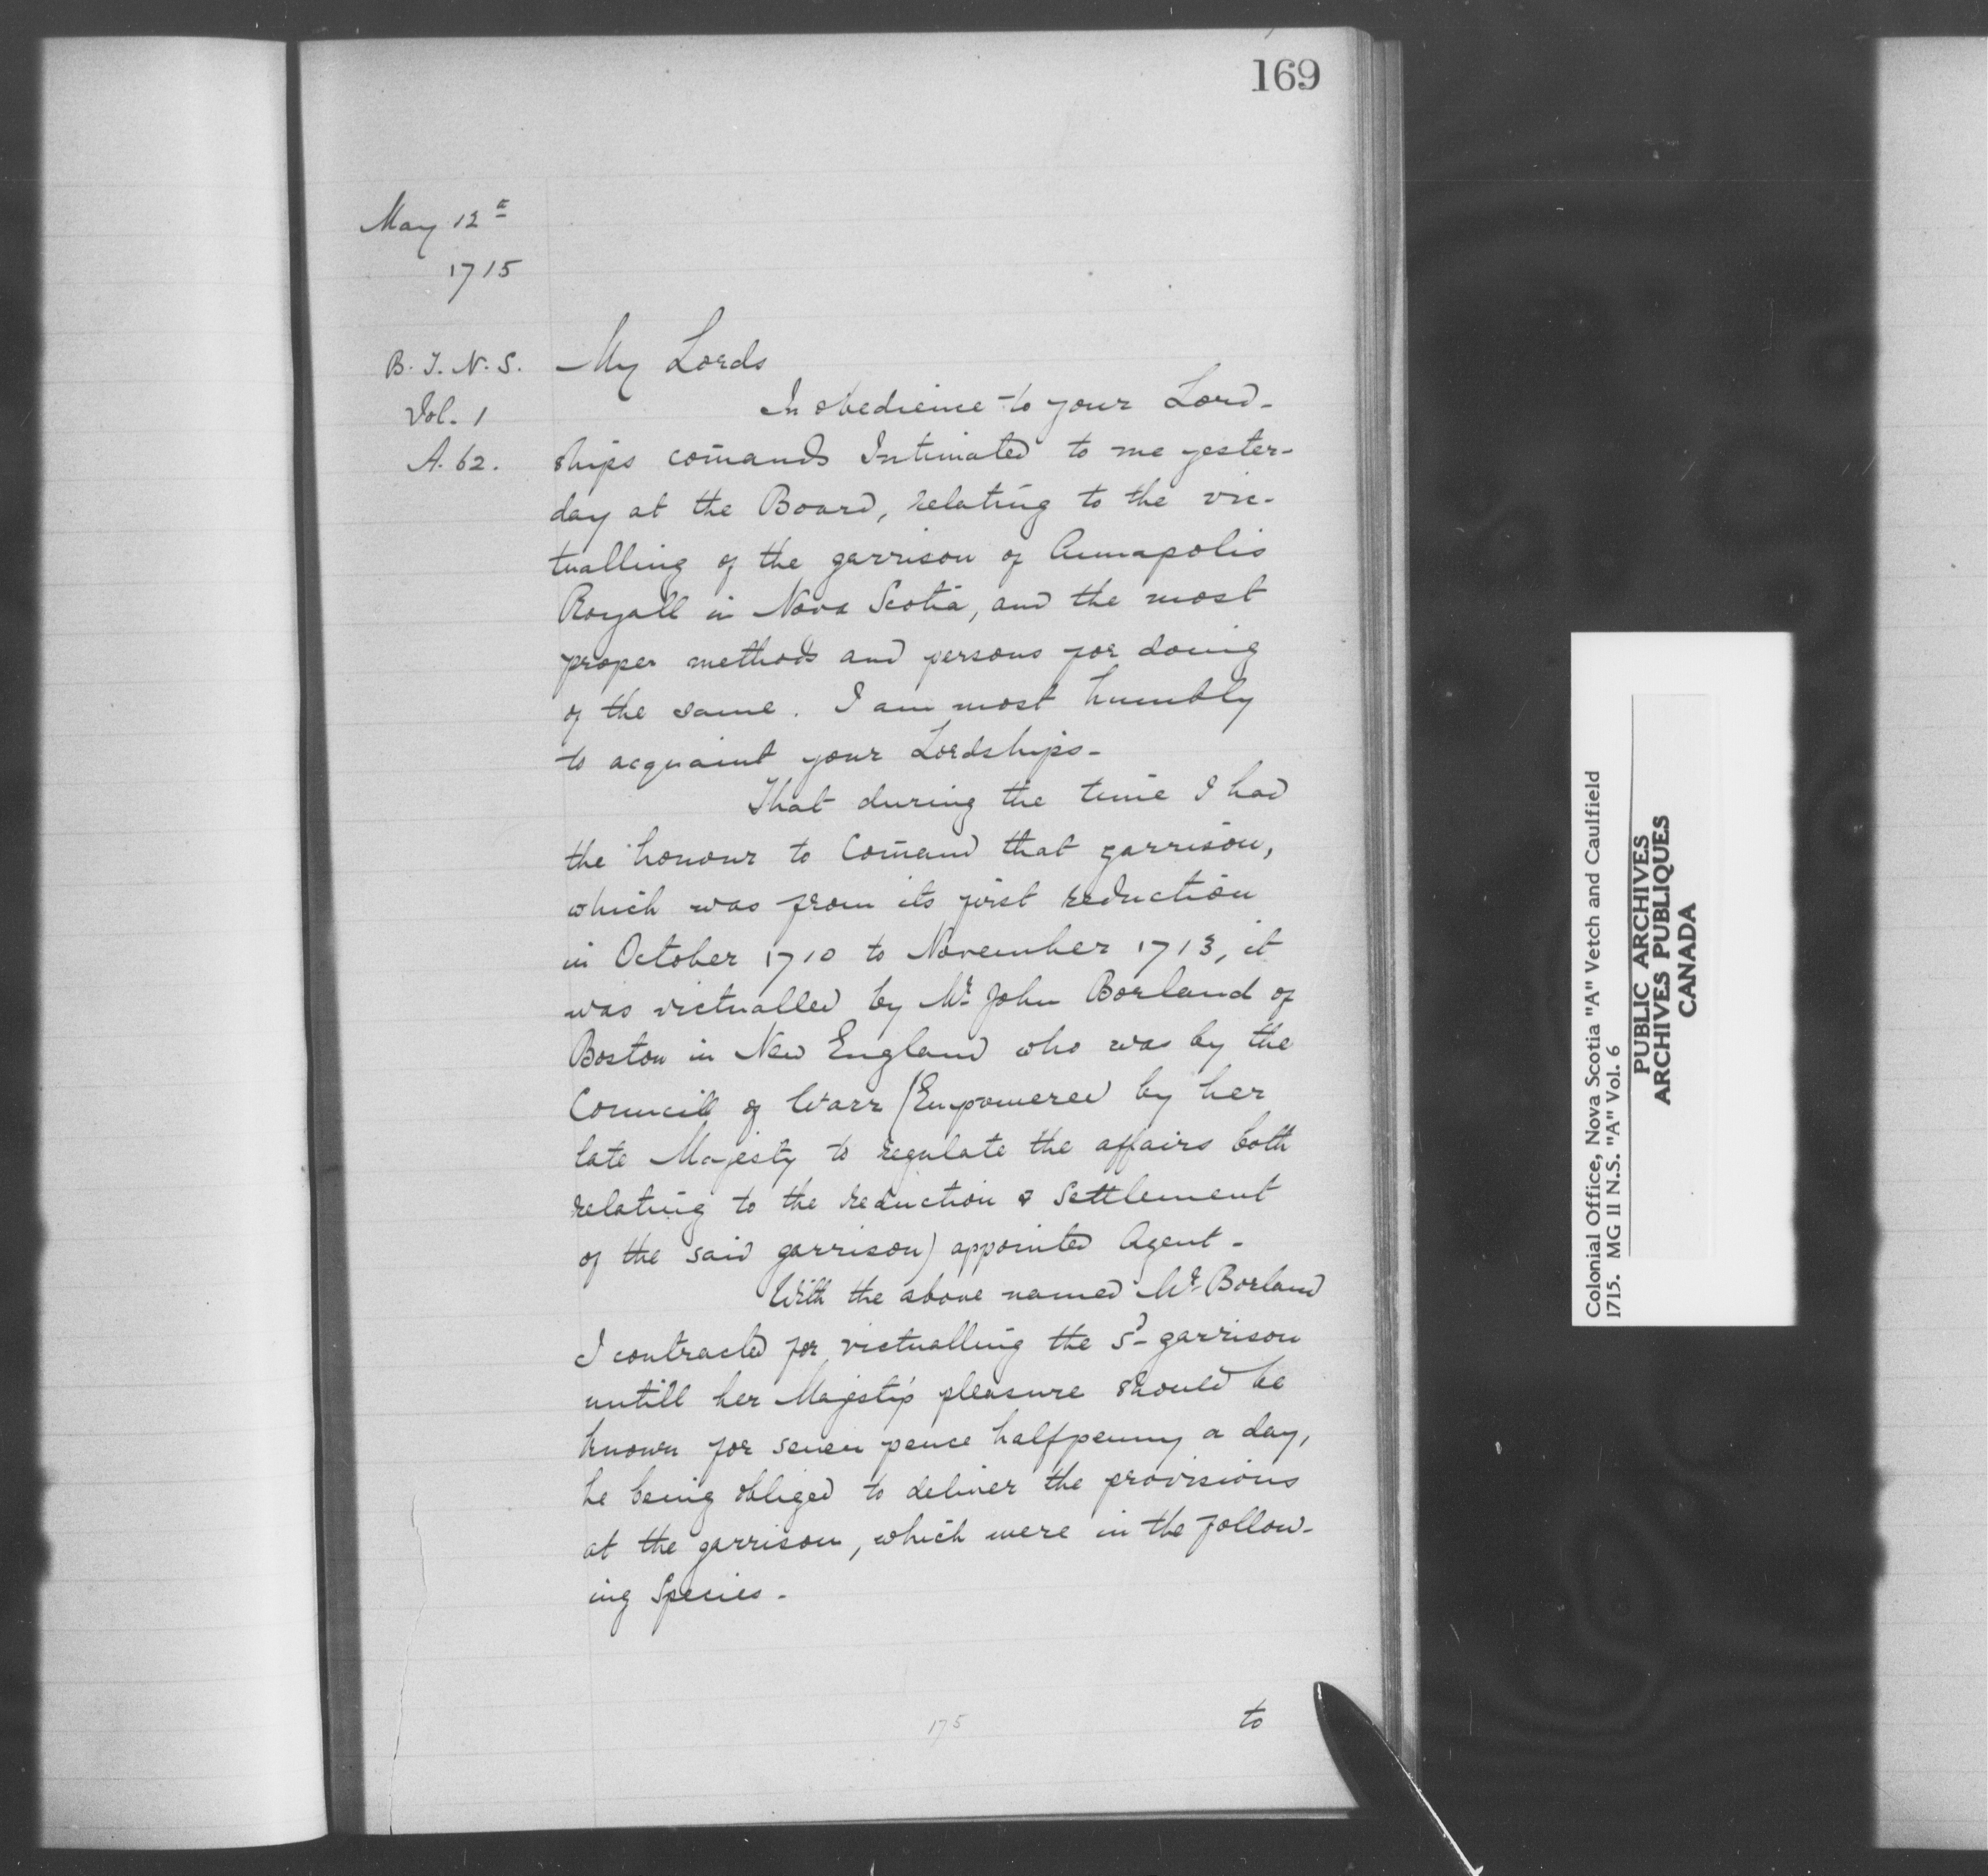 169
May 12th
1715
B. T. N. S.
Vol. 1
A. 62.
My Lords
In obedience to your Lord-
ships com̄ands Intimated to me yester-
day at the Board, relating to the vic-
tualling of the garrison of Annapolis
Royall in Nova Scotia, and the most
proper methods and persons for doing
of the same. I am most humbly
to acquaint your Lordships-
That during the time I had
the honour to Com̄and that garrison,
which was from its first reduction
in October 1710 to November 1713, it
was victualled by Mr John Borland of
Boston in New England who was by the
Councill of Warr (Empowered by her
late Majesty to regulate the affairs both
relating to the reduction & Settlement
of the said garrison) appointed Agent-
With the above named Mr Borland
I contracted for victualling the sd garrison
untill her Majestys pleasure should be
known for seven pence halfpenny a day,
he being obliged to deliver the provisions
at the garrison, which were in the follow-
ing Species-
to
175
Colonial Office, Nova Scotia "A" Vetch and Caulfield
1715. MG 11 N.S. "A" Vol. 6
PUBLIC ARCHIVES
ARCHIVES PUBLIQUES
CANADA